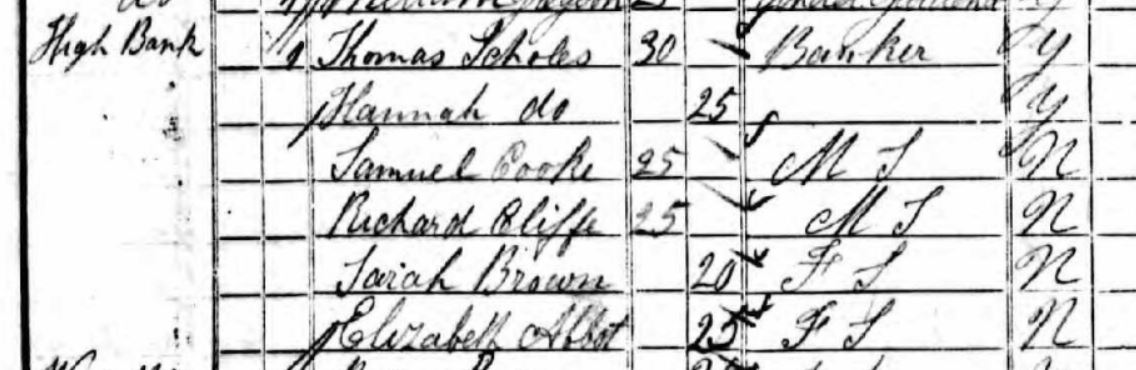 High Bank 1 Thomas Scholes 30 Banker Y
Hannah do 25 Y
Samuel Cooke 25 M S N
Richard Cliffe 25 M S N
Sarah Brown 20 F S N
Elizabeth Abbot 25 F S N